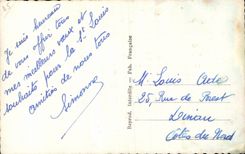 Je suis heureuse
de vous offrir tous
mes meilleurs vœux et
souhaits pour la St Louis
amitiés de nous tous
Simonne
Reprod. Interdite
Fab. Française
Mr Louis
25, Rue de Brest
Dinan
Côtes du Nord